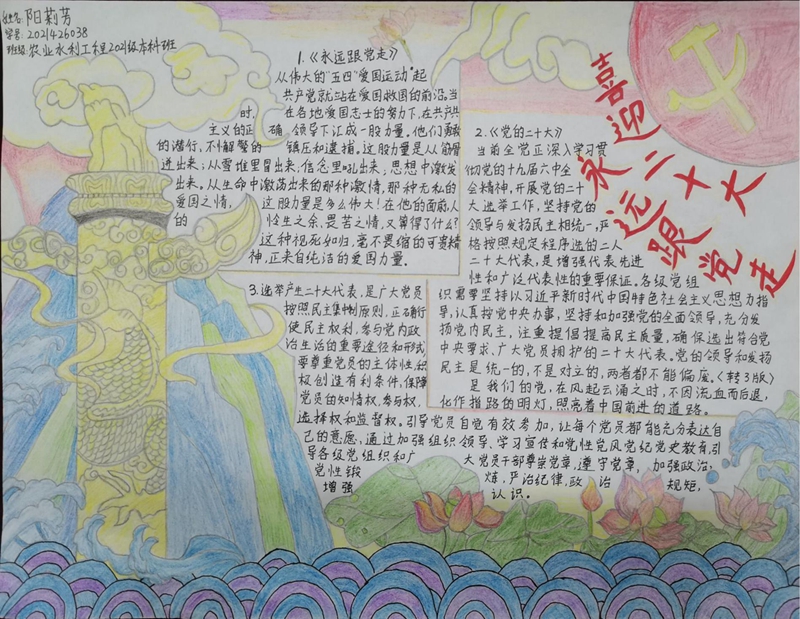 姓名:阳莉芳
学号:2021426038
班级:农业水利工程2021级本科班
喜迎二十大
永远跟党走
1.《永远跟党走》
从伟大的"五四"爱国运动"起
共产党就站在爱国救国的前沿。当
时,在各地爱国志士的努力下,在共产共
主义的正确领导下汇成一股力量。他们勇敢
的潜行,不惧繁的镇压和逮捕。这股力量是从筋骨
进出来;从雪堆里冒出来;信念里吼出来;思想中激发
出来。从生命中激荡出来的那种激情,那种无私的
爱国之情,这股力量是多么伟大!在他的面前,人
的怆生之余、畏苦之情,又算得了什么?
这种视死如归,毫不畏缩的可贵精
神,正来自纯洁的爱国力量。
2.《党的二十大》
当前全党正深入学习贯
彻党的十九届六中全
会精神,开展党的二十
大选举工作,坚持党的
领导与发扬民主相统一,严
格按照规定程序选的二人
二十大代表,是增强代表先进
性和广泛代表性的重要保证。各级党组
织需要坚持以习近平新时代中国特色社会主义思想为指
导,认真按党中央办事,坚持和加强党的全面领导,充分发
扬党内民主,注重提倡提高民主质量,确保选出符合党
中央要求、广大党员拥护的二十大代表。党的领导和发扬
民主是统一的,不是对立的,两者都不能偏废。《转3版》
是我们的党,在风起云涌之时,不因流血而后退,
化作指路的明灯,照亮着中国前进的道路。
3.选举产生二十大代表,是广大党员
按照民主集中制原则,正确行
使民主权利,参与党内政
治生活的重要途径和形式,
要尊重党员的主体性,积
极创造有利条件,保障
党员的知情权、参与权、
选择权和监督权。引导党员自觉有效参加,让每个党员都能充分表达自
己的意愿,通过加强组织领导、学习宣传和党性党风党纪党史教育,引
导各级党组织和广大党员干部尊崇党章,遵守党章,加强政治;
党性锻炼,严治纪律,政治规矩,
增强认识。